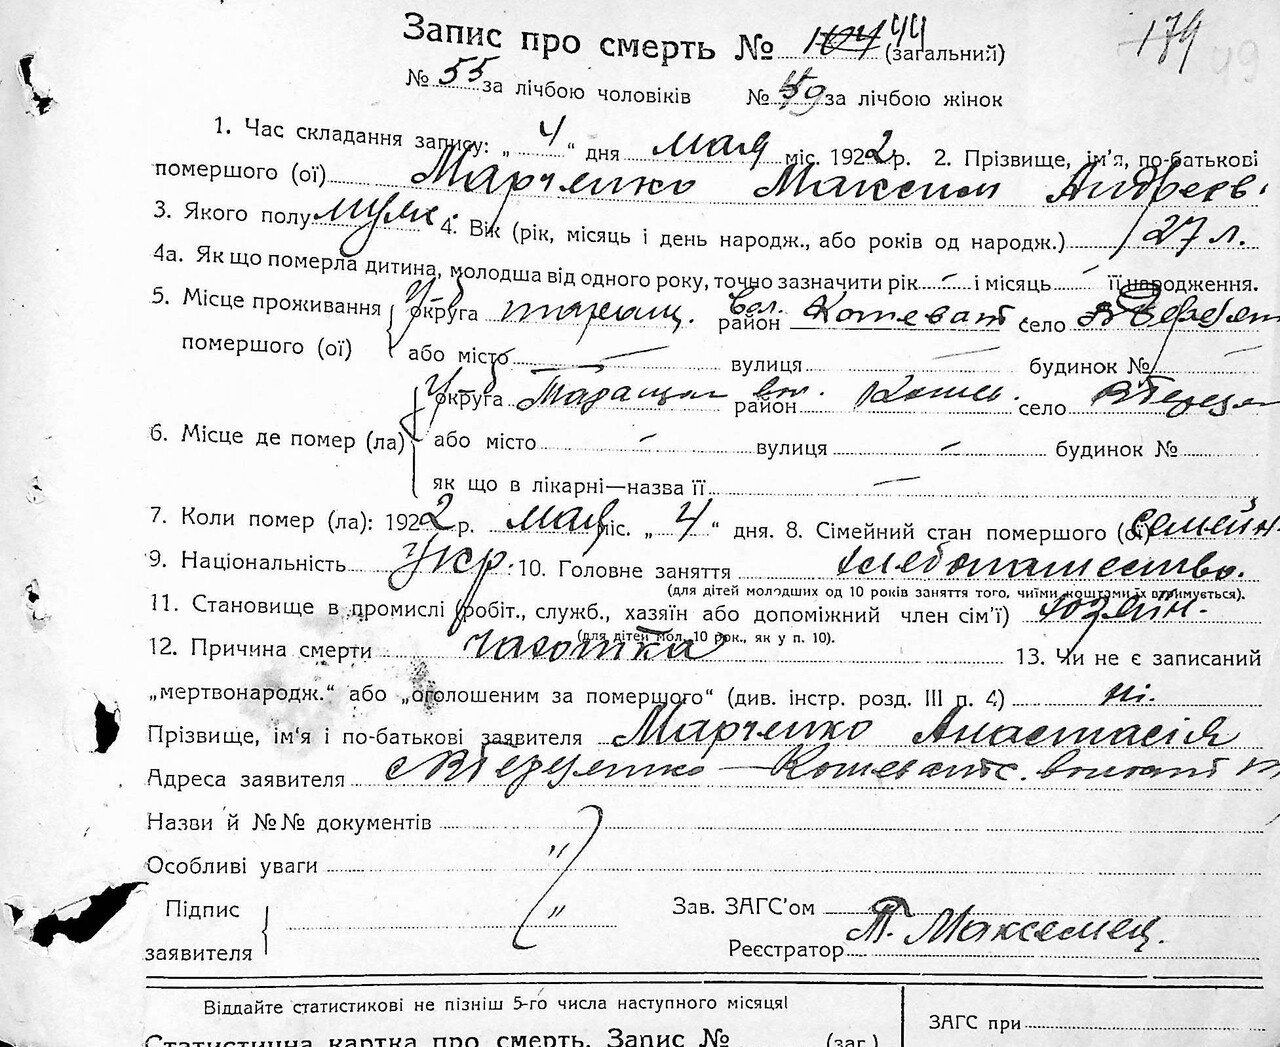 Запис про смерть № 44 (загальний)
179
№ 55 за лічбою чоловіків № за лічбою жінок
1. Час складання запису: „ 4 “ дня мая міс. 1922 р. 2. Прізвище, ім'я, по-батькові
помершого (ої) Марченко Максим Андреев.
3. Якого полу муж. 4. Вік (рік, місяць і день народж., або років од народж.) 27 л.
4а. Як що померла дитина, молодша від одного року, точно зазначити рік - і місяць - її народження.
5. Місце проживання
помершого (ої)
округа таращ. вол. район Кошеват. село
або місто — вулиця — будинок №
6. Місце де помер (ла)
округа Таращан вол. район Кошев. село
або місто - вулиця - будинок №
як що в лікарні—назва її —
7. Коли помер (ла): 1922 р. мая міс. „ 4 “ дня. 8. Сімейний стан помершого (ої) семейн.
9. Національність Укр. 10. Головне заняття хлебопашество.
(для дітей молодших од 10 років заняття того, чиїми коштами їх втримується).
11. Становище в промислі (робіт., служб., хазяїн або допоміжний член сім'ї) хозяін.
(для дітей мол. 10 рок., як у п. 10).
12. Причина смерти чахотка 13. Чи не є записаний
„мертвонародж.“ або „оголошеним за помершого“ (див. інстр. розд. III п. 4) ні.
Прізвище, ім'я і по-батькові заявителя Марченко Анастасія
Адреса заявителя
Назви й №№ документів
Особливі уваги "
Підпис
заявителя "
Зав. ЗАГС'ом
Реєстратор П. Максемец.
Віддайте статистикові не пізніш 5-го числа наступного місяця!
Статистична картка про смерть. Запис № (заг.)
ЗАГС при